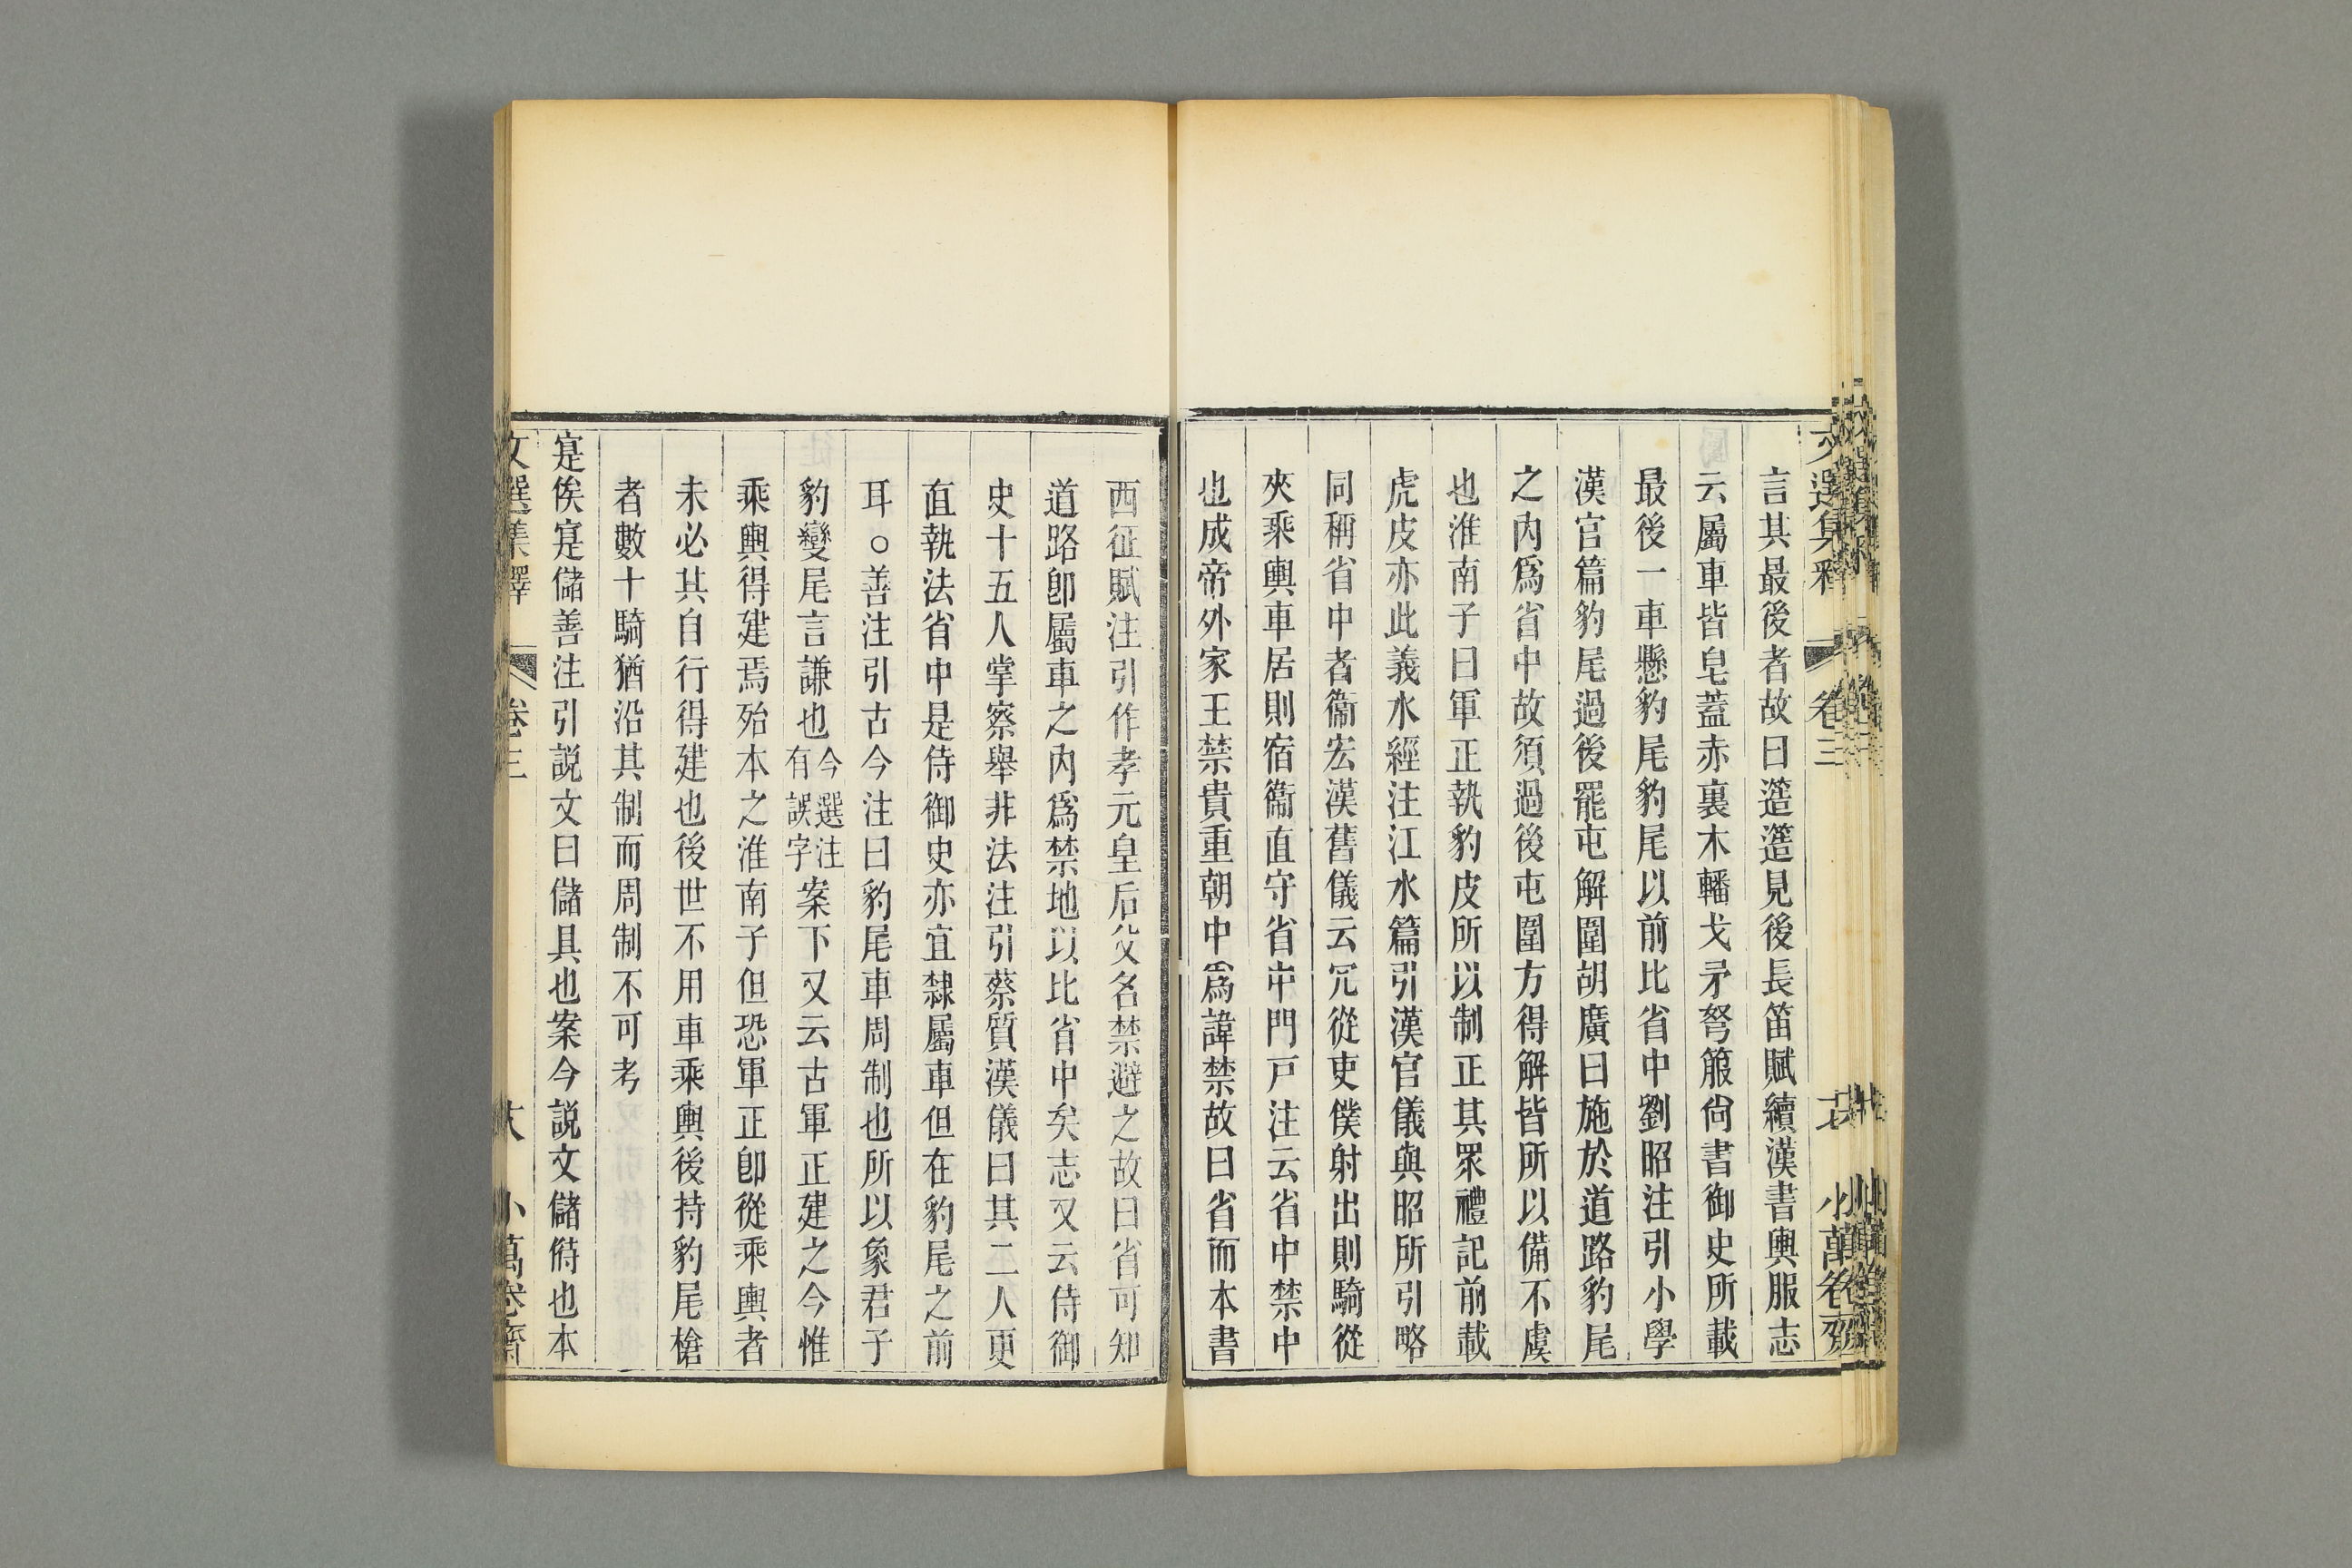 文選集釋 卷三 小萬卷齋
言其最後者故曰簉簉見後長笛賦續漢書輿服志
云屬車皆皂蓋赤裏木轓戈矛弩箙尙書御史所載
最後一車懸豹尾豹尾以前比省中劉昭注引小學
漢官篇豹尾過後罷屯解圍胡廣曰施於道路豹尾
之內爲省中故須過後屯圍方得解皆所以備不虞
也淮南子曰軍正執豹皮所以制正其眾禮記前載
虎皮亦此義水經注江水篇引漢官儀與昭所引略
同稱省中者衞宏漢舊儀云冗從吏僕射出則騎從
夾乘輿車居則宿衞直守省中門戸注云省中禁中
也成帝外家王禁貴重朝中爲諱禁故曰省而本書
西征賦注引作孝元皇后父名禁避之故曰省可知
道路卽屬車之內爲禁地以比省中矣志又云侍御
史十五人掌察舉非法注引蔡質漢儀曰其二人更
直執法省中是侍御史亦宜隸屬車但在豹尾之前
耳○善注引古今注曰豹尾車周制也所以象君子
豹變尾言謙也今選注有誤字案下又云古軍正建之今惟
乘輿得建焉殆本之淮南子但恐軍正卽從乘輿者
未必其自行得建也後世不用車乘輿後持豹尾槍
者數十騎猶沿其制而周制不可考
寔俟寔儲善注引説文曰儲具也案今説文儲偫也本
文選集釋 卷三 小萬卷齋